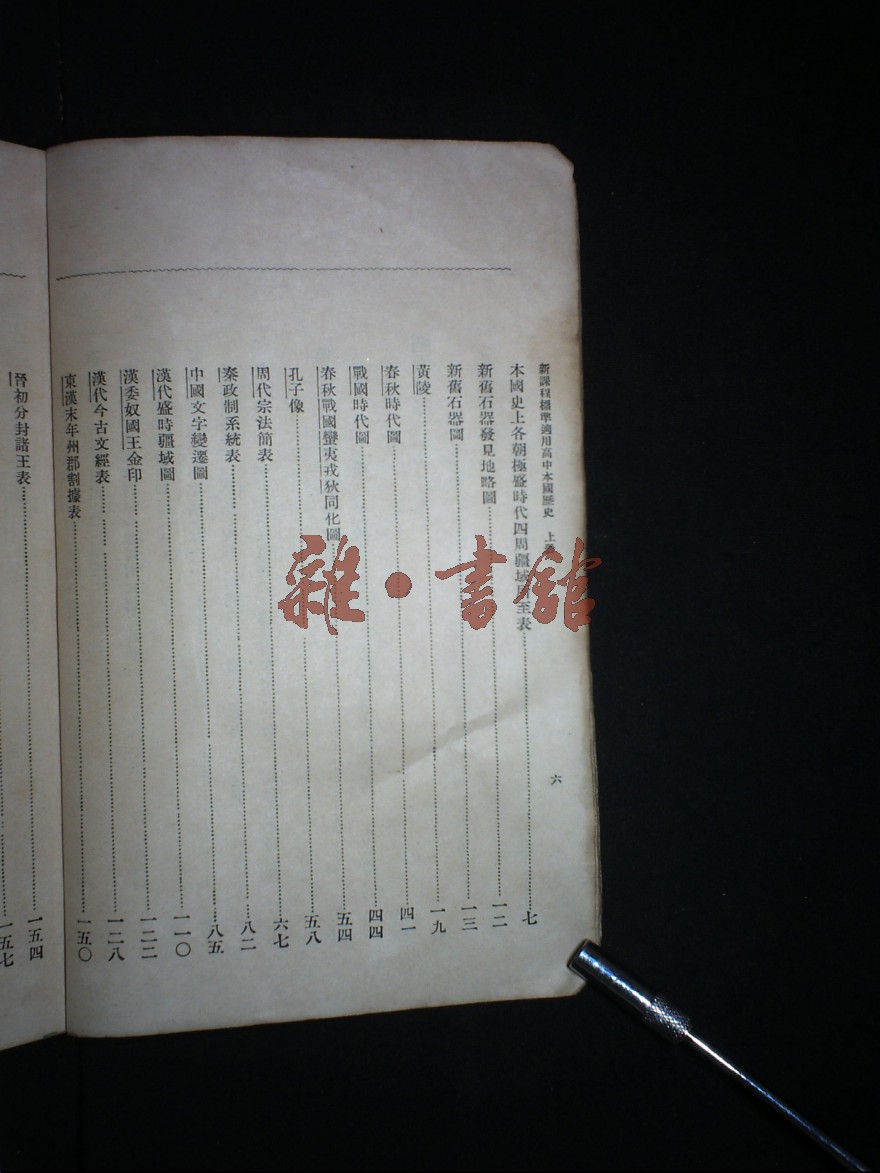 新課程標準適用高中本國歷史 上 六
本國史上各朝極盛時代四周疆域至表……七
新舊石器發見地略圖……一二
新舊石器圖……一三
黃陵……一九
春秋時代圖……四一
戰國時代圖……四四
春秋戰國蠻夷戎狄同化圖……五四
孔子像……五八
周代宗法簡表……六七
秦政制系統表……八二
中國文字變遷圖……八五
漢代盛時疆域圖……一一〇
漢委奴國王金印……一二二
漢代今古文經表……一二八
東漢末年州郡割據表……一五〇
晉初分封諸王表……一五四
……一五七
雜·書館